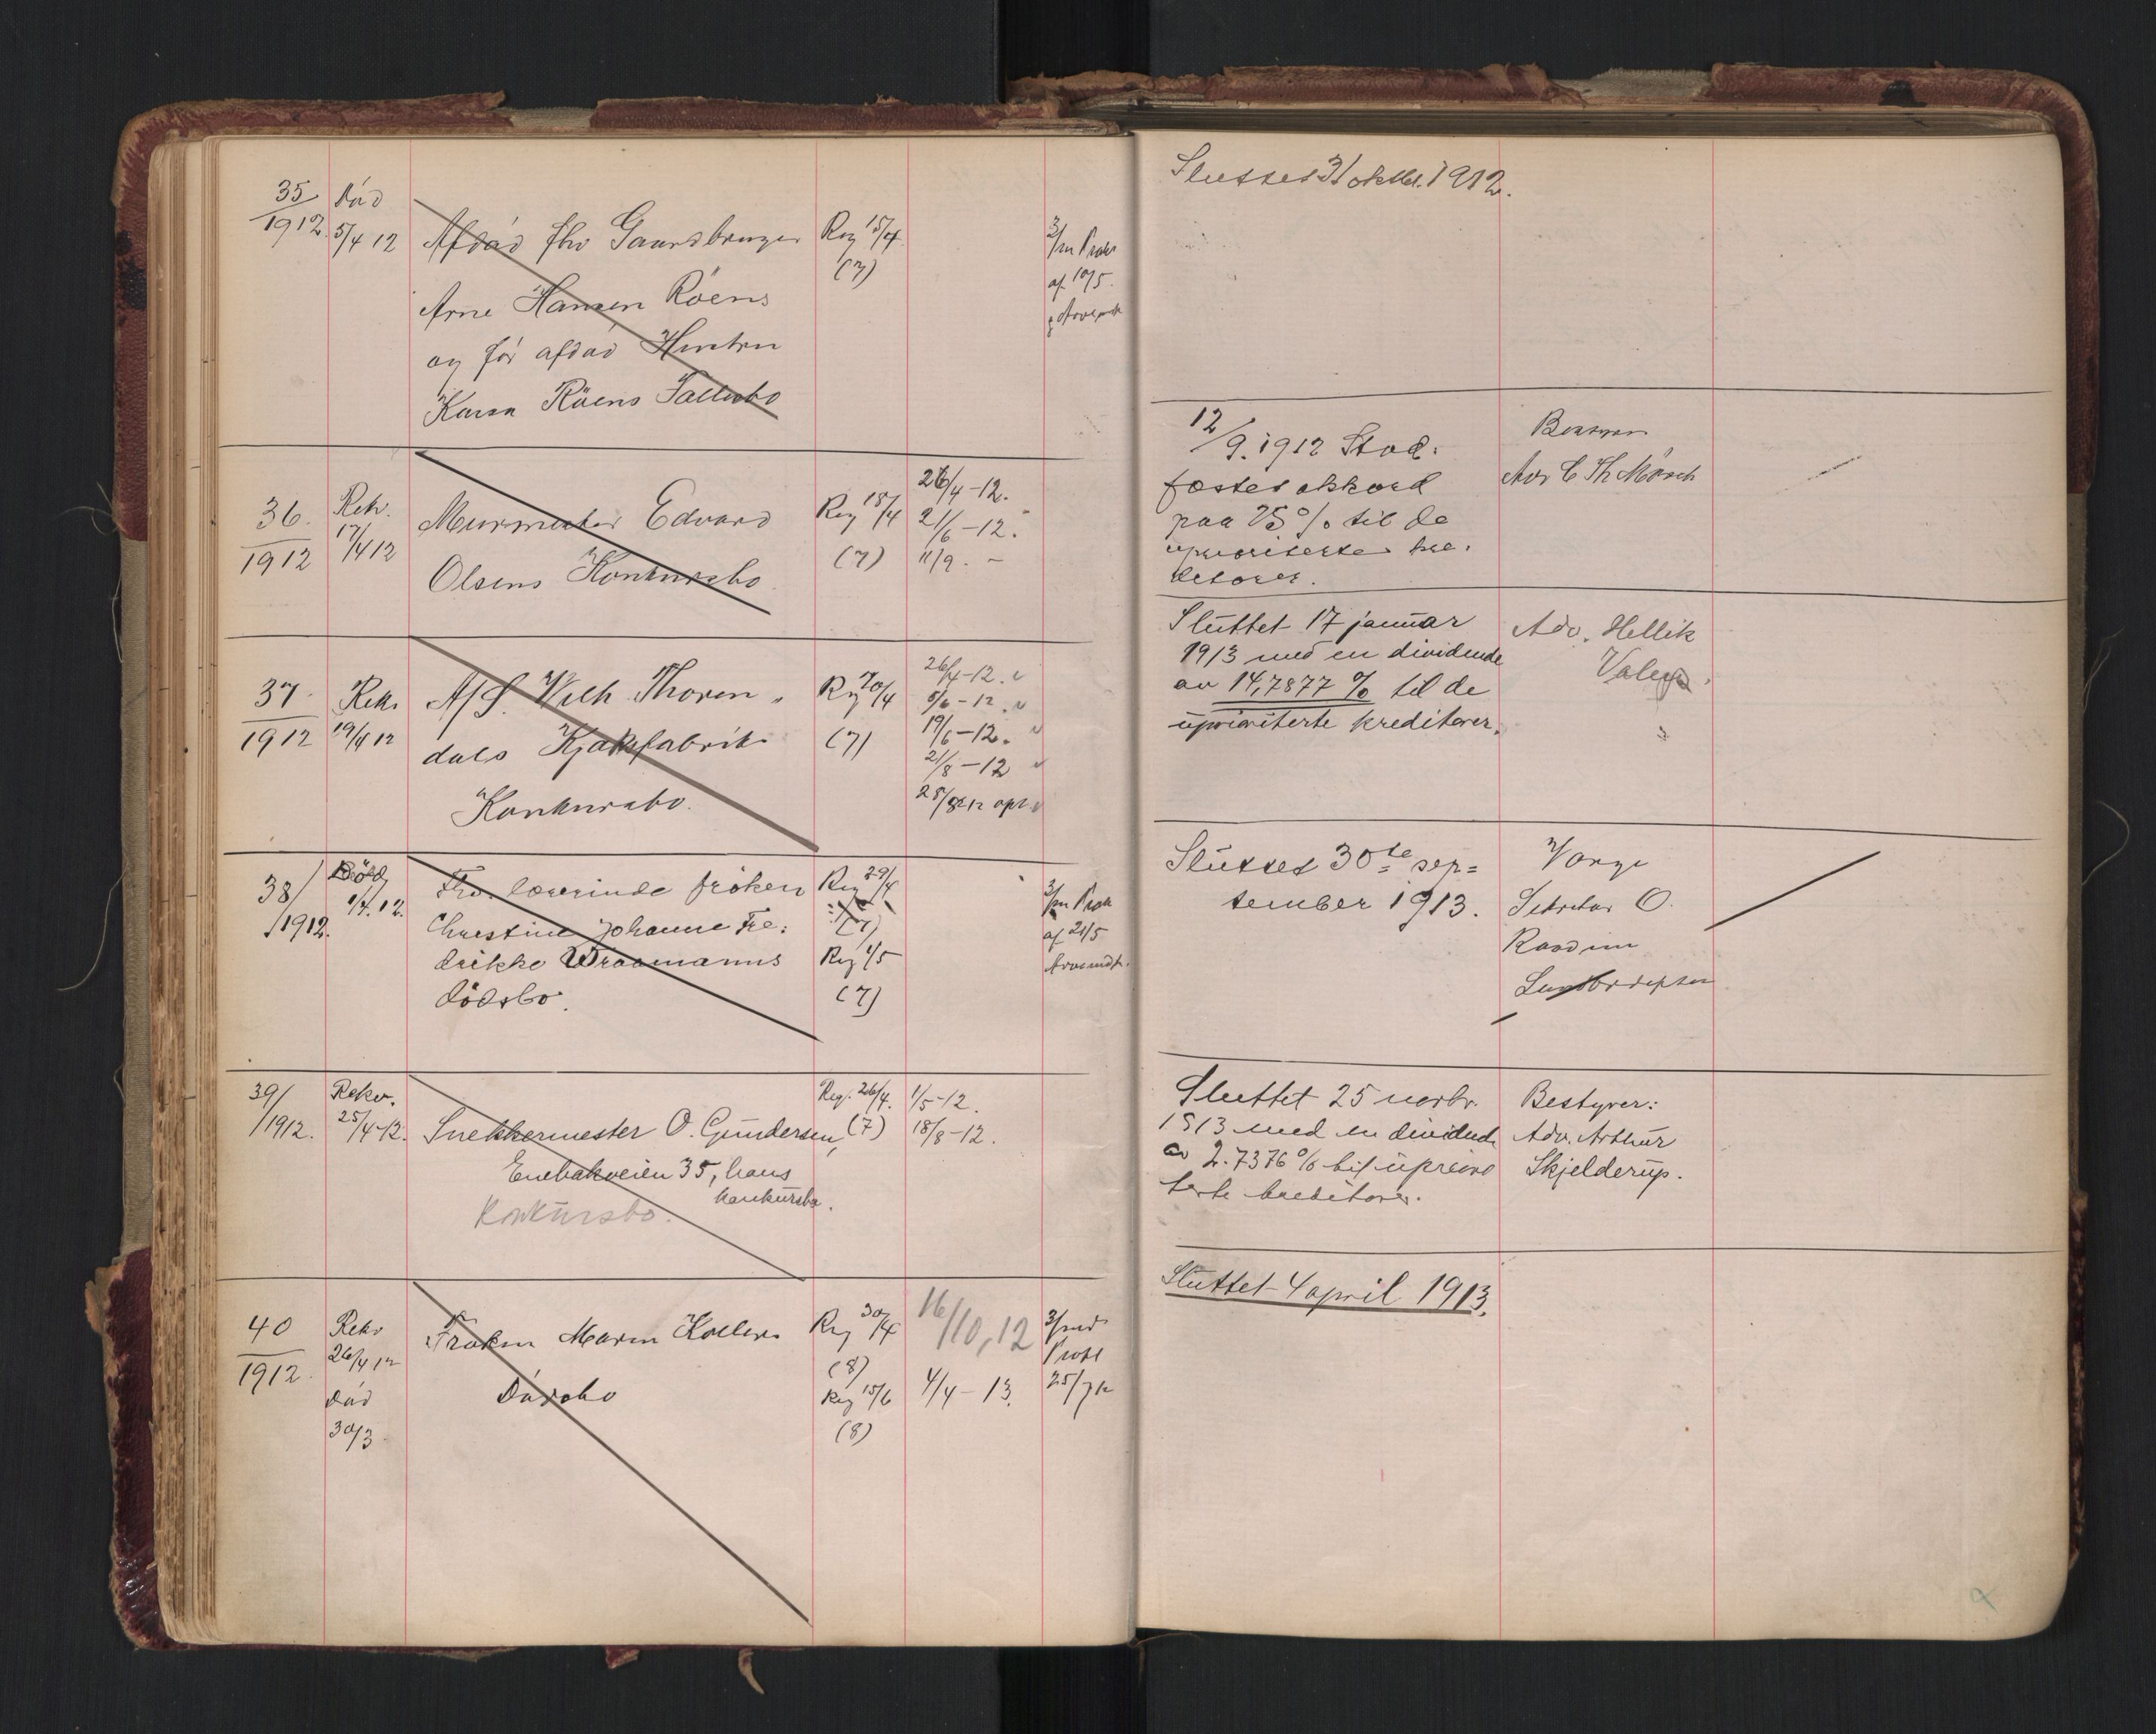 35/1912. Död 5/4 12
Afdöd fhv Gaardbruger
Arne Hansen Röens
og før afdöd Hustru
Karen Röens Fællesbo
Reg 15/4
(7)
3/m Prok
af 10/5.
Sluttet 31 oktbr. 1912.
36/1912 Rekv. 17/4 12
Murmester Edvard
Olsens Konkursbo
Reg 18/4
(7)
26/4-12.
21/6-12.
11/9. -
12/9. 1912 Stad:
fæstet akkord
paa 25% til de
uprioriterte kre:
ditorer.
Adv C Th Mörch
37/1912 Rekv 19/4 12
A/S. Wilh. Thoren
dals Kjæksfabrik
Konkursbo.
Reg 20/4
(7)
26/4-12.
5/6-12.
19/6-12.
21/8-12
25/8 12
Sluttet 17 januar
1913 med en dividende
av 14,7877 % til de
uprioriterte kreditorer.
Adv. Hellik
38/1912. Död
Fhv. lærerinde frøken
Christine Johanne Fre:
drikke
dödsbo.
Reg 29/4
(7)
Reg 1/5
(7)
3/m Prok
af 21/5
Sluttet 30te sep=
tember 1913.
Verge
Sekretær O.
39/1912. Rekv. 25/4-12.
Snekkermester O. Gundersen,
Enebakveien 35, hans
konkursbo.
Konkursbo.
Reg. 26/4.
(7)
1/5-12.
18/8-12.
Sluttet 25 novbr.
1913 med en dividende
av 2.7376% til uprior
terte kreditorer.
Bestyrer:
Adv. Arthur
Skjelderup.
40/1912. Rekv 26/4 12
Död
30/3
Frøken Maren Kollers
Dödsbo
Reg 30/4
(8)
Reg 15/6
(8)
16/10, 12
4/4-13.
3/md
Prokl
25/7 12
Sluttet 4 april 1913.